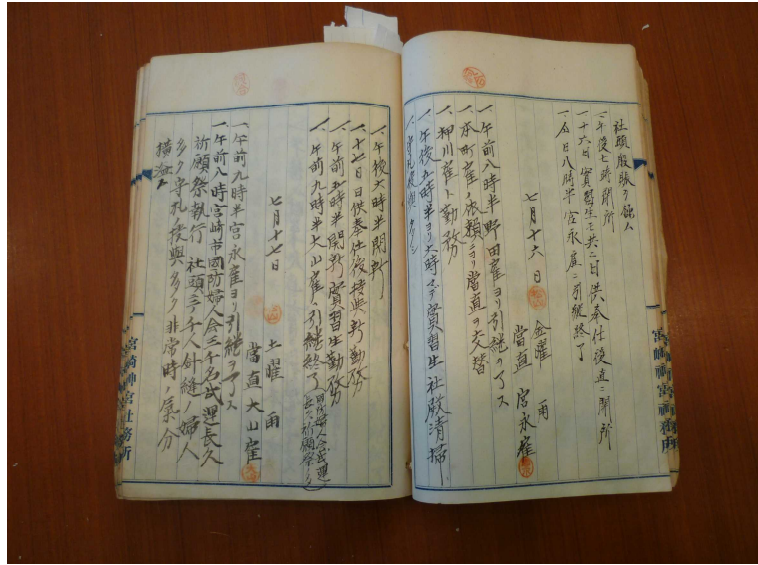 社頭殷賑ヲ極ム
一、午後七時閉所
一、十六日實習生ト共ニ日供奉仕後直ニ開所
一、仝日八時半宮永雇ニ引継終了
七月十六日 金曜 雨
當直 宮永雇
一、午前八時半野田雇ヨリ引継ヲ了ス
一、本町雇ノ依頼ニヨリ當直ヲ交替
一、押川雇ト勤務
一、午後五時半ヨリ六時マデ實習生社殿清掃
一、守札授與
一、午後六時半閉所
一、十七日日供奉仕後授與所勤務
一、午前五時半開所實習生勤務
一、午前九時半大山雇ヘ引継終了
七月十七日 土曜 雨
當直大山雇
一、午前九時半宮永雇ヨリ引継ヲ了ス
一、午前八時宮崎市國防婦人会三千名武運長久
祈願祭執行 社頭ニ千人針縫ノ婦人
多ク守札授與多ク非常時ノ氣分
横溢ス
宮崎神宮社務所
宮崎神宮社務所